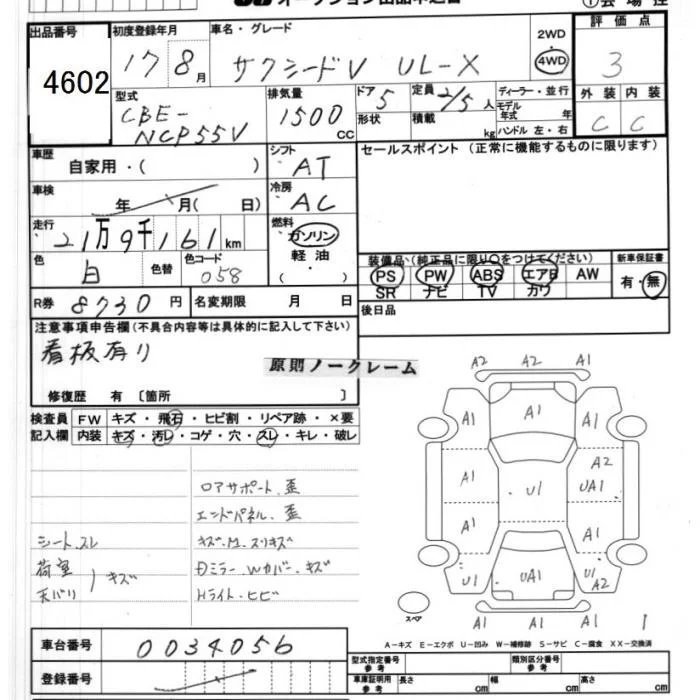 オークション出品申込書
①会場控
出品番号 4602
初度登録年月 17 8月
車名・グレード サクシードV UL-X
2WD 4WD
評価点 3
外装 内装
C C
型式 CBE-NCP55V
排気量 1500 CC
ドア 5
形状
定員 2/5人
積載 kg
ディーラー・並行
モデル年式 年
ハンドル 左・右
車歴 自家用・( )
車検 年 月( 日)
シフト AT
冷房 AC
セールスポイント (正常に機能するものに限ります)
走行 21万9千161km
燃料 ガソリン
軽油
( ・ )
色 白
色替
色コード 058
装備品 (純正品に限り○をつけてください)
PS PW ABS エアB AW
SR ナビ TV カワ
新車保証書
有・無
R券 8730円
名変期限 月 日
後日品
注意事項申告欄(不具合内容等は具体的に記入して下さい)
看板有り
原則ノークレーム
修復歴 有 〔箇所 〕
検査員記入欄
FW キズ・飛石・ヒビ割・リペア跡・×要
内装 キズ・汚レ・コゲ・穴・スレ・キレ・破レ
ロアサポート、歪
エンドパネル、歪
シート、スレ
キズ・M、スリキズ
荷室
天バリ
キズ
Dミラー、Wカバー、キズ
Hライト、ヒビ
A2 A2 A1
A1 A1 A1
A1 A2
U1 UA1
A1 A1
U1 UA1 U1 A2
A1 A1 A1
スペア
A-キズ E-エクボ U-凹み W-補修跡 S-サビ C-腐食 XX-交換済
車台番号 0034056
登録番号
型式指定番号 参考
類別区分番号 参考
車庫証明用 参考
長さ cm
幅 cm
高さ cm